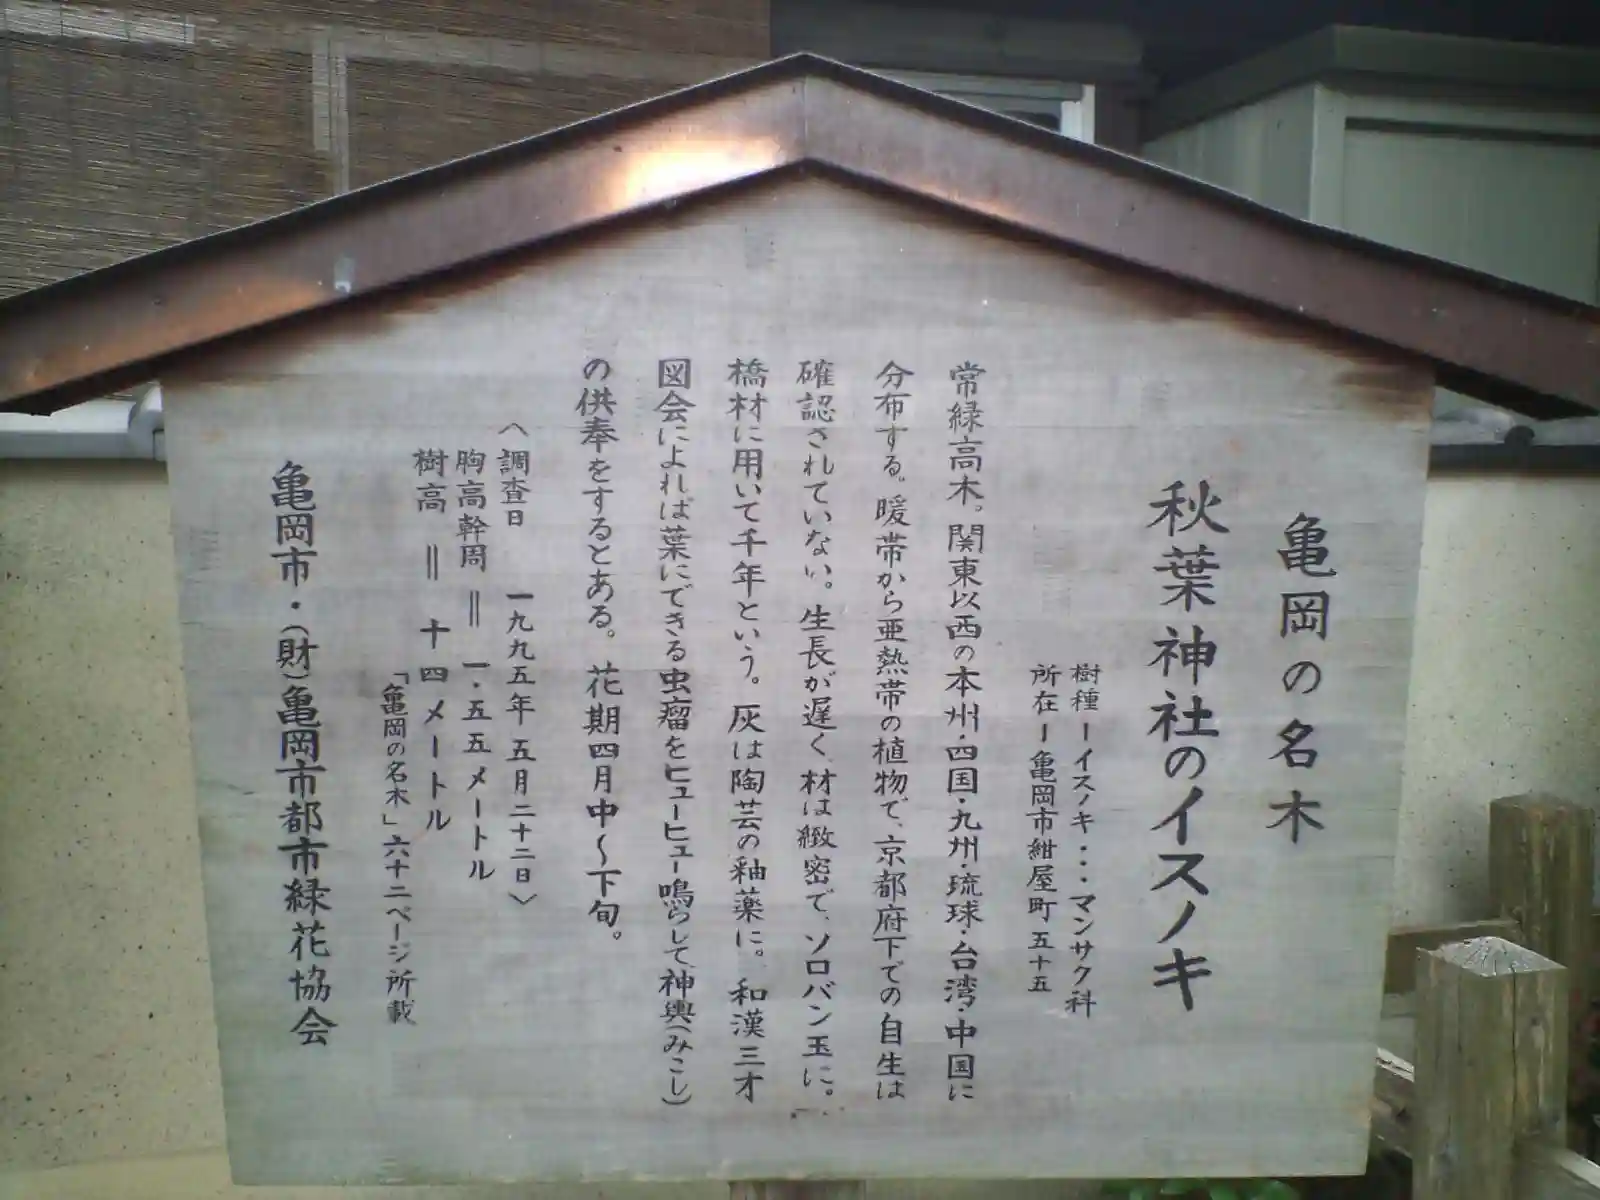 亀岡の名木
秋葉神社のイスノキ
樹種ーイスノキ・・・マンサク科
所在ー亀岡市紺屋町五十五
常緑高木。関東以西の本州・四国・九州・琉球・台湾・中国に
分布する。暖帯から亜熱帯の植物で、京都府下での自生は
確認されていない。生長が遅く、材は緻密で、ソロバン玉に。
橋材に用いて千年という。灰は陶芸の釉薬に。和漢三才
図会によれば葉にできる虫瘤をヒューヒュー鳴らして神輿(みこし)
の供奉をするとある。花期四月中〜下旬。
〈調査日 一九九五年五月二十二日〉
胸高幹周=一・五五メートル
樹高=十四メートル
「亀岡の名木」六十二ページ所載
亀岡市・(財)亀岡市都市緑花協会